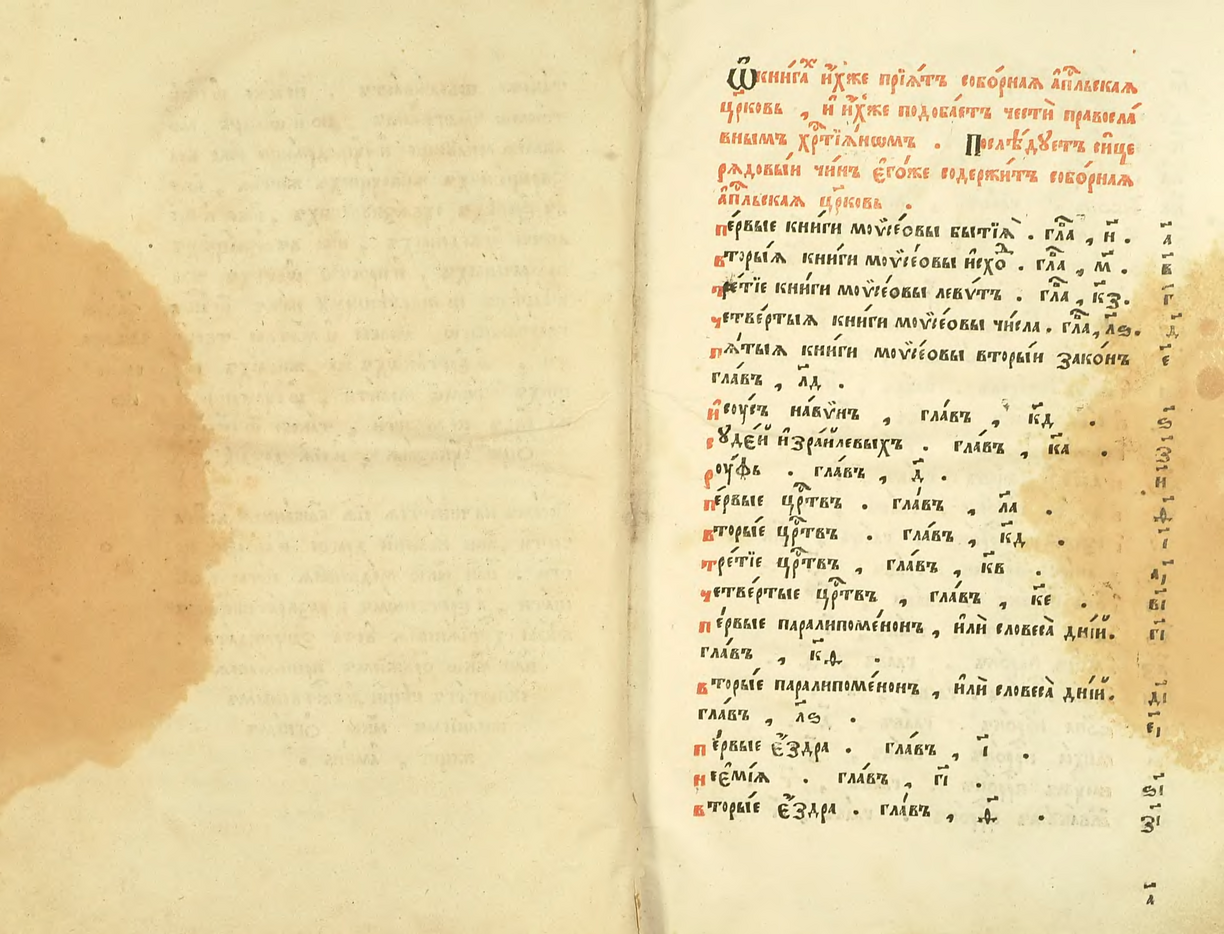 Ѿ кни́гаⷯ и҆́хже прїѧ́тъ собо́рнаѧ а҆пⷭ҇льскаѧ
цр҃ковь , и҆ и҆́хже подоба́етъ че́сти правосла́
внымъ хрⷭ҇тїѧ́нѡмъ . Послѣ́дꙋетъ си́це
рѧдовы́й чи́нъ є҆го́же содержи́тъ собо́рнаѧ
а҆пⷭ҇льскаѧ цр҃ковь .
пе́рвые кни́ги моѷсе́овы бытїѧ̀ . глⷡ҇а , н҃ . а҃
вторы́ѧ кни́ги моѷсе́овы и҆схоⷣ . глⷡ҇а , м҃ . в҃
тре́тїе кни́ги моѷсе́овы левѵ́тъ . глⷡ҇а , к҃з . г҃
четве́ртыѧ кни́ги моѷсе́овы чи́сла . глⷡ҇а , л҃ѕ . д҃
пѧ́тыѧ кни́ги моѷсе́овы вторы́й зако́нъ є҃
гла́въ , л҃д .
и҆соу́съ нави́нъ , гла́въ , к҃д . ѕ҃
сꙋде́й и҆зра́илевыхъ . гла́въ , к҃а .
роу́ѳь . гла́въ , д҃ . и҃
пе́рвые црⷭ҇твъ . гла́въ , л҃а . ѳ҃
вторы́е црⷭ҇твъ . гла́въ , к҃д . і҃
тре́тїе црⷭ҇твъ , гла́въ , к҃в . а҃і
четве́ртые црⷭ҇твъ , гла́въ , к҃е . в҃і
пе́рвые паралипоме́нонъ , и҆лѝ словеса̀ дні́й . г҃і
гла́въ , к҃ѳ .
вторы́е паралипоме́нонъ , и҆лѝ словеса̀ дні́й . д҃і
гла́въ , л҃ѕ .
пе́рвые є҆́здра . гла́въ , і҃ . е҃і
неємі́ѧ . гла́въ , г҃і . ѕ҃і
вторы́е є҆́здра . гла́въ , ѳ҃ . з҃і
а҃